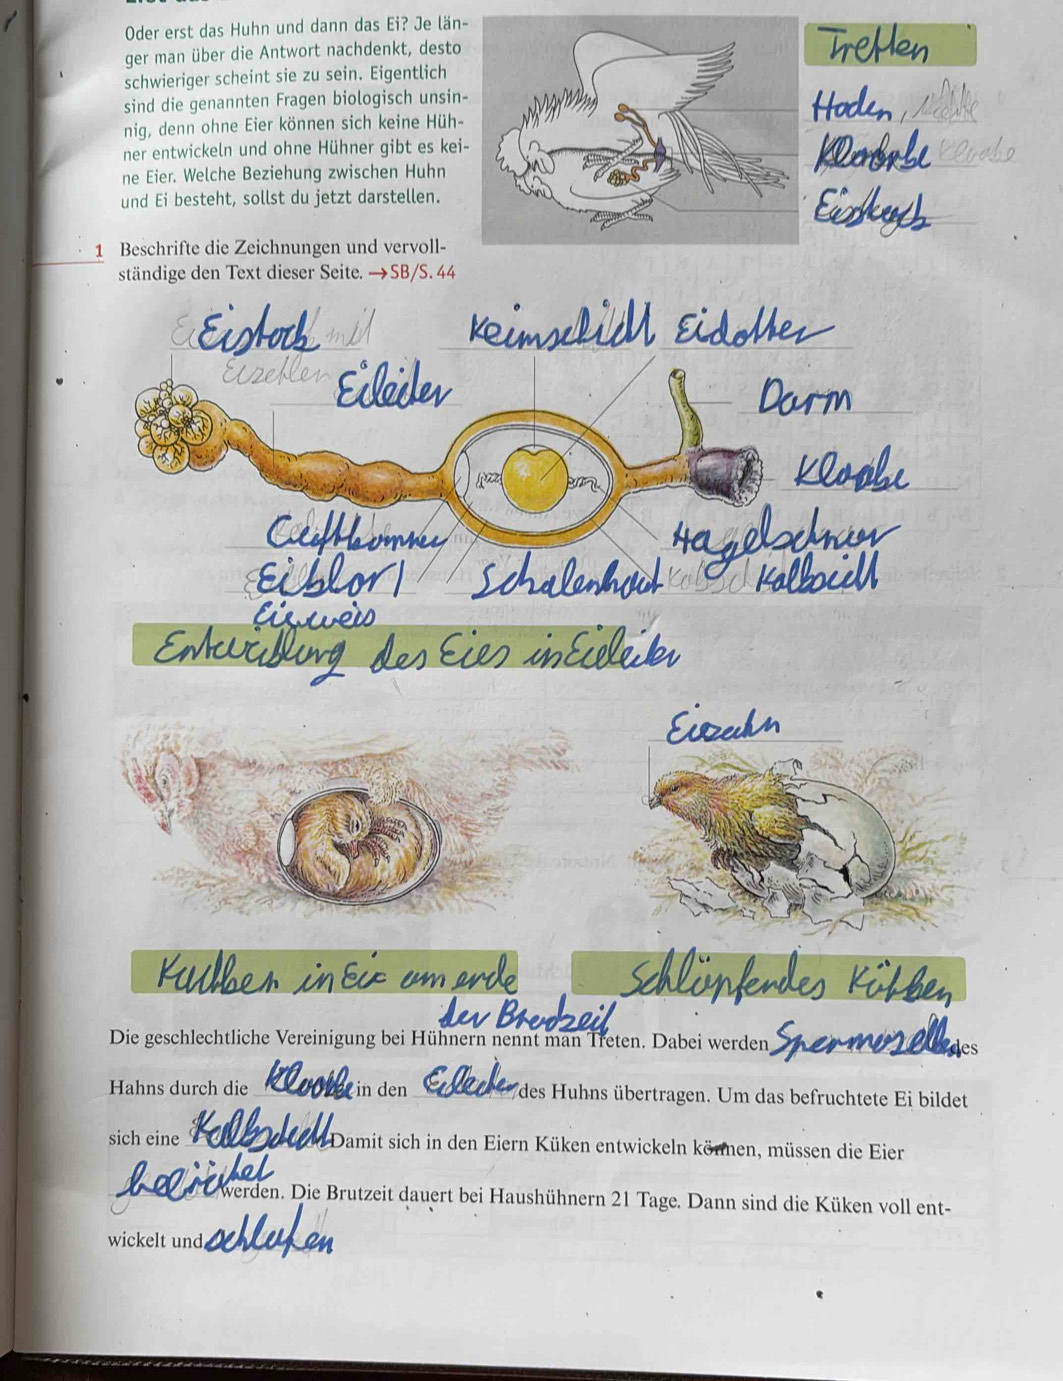 Oder erst das Huhn und dann das Ei? Je län-
ger man über die Antwort nachdenkt, desto
schwieriger scheint sie zu sein. Eigentlich
sind die genannten Fragen biologisch unsin-
nig, denn ohne Eier können sich keine Hüh-
ner entwickeln und ohne Hühner gibt es kei-
ne Eier. Welche Beziehung zwischen Huhn
und Ei besteht, sollst du jetzt darstellen.
Tretten
Hoden,
Kloake
Eistock
1 Beschrifte die Zeichnungen und vervoll-
ständige den Text dieser Seite. →SB/S. 44
Eistock mit Keimschicht Eidotter
Eizellen Eileiter
Darm
Kloake
Luftkammer Hagelschnur
Eiklar Schalenhaut Kalkschicht
Eiweis
Entwicklung des Eies in Eileiter
Eizahn
in Ei am ende Schlüpfendes
der Brutzeit
Die geschlechtliche Vereinigung bei Hühnern nennt man Treten. Dabei werden Spermazelle des
Hahns durch die Kloake in den Eileiter des Huhns übertragen. Um das befruchtete Ei bildet
sich eine Kalkschicht Damit sich in den Eiern Küken entwickeln können, müssen die Eier
werden. Die Brutzeit dauert bei Haushühnern 21 Tage. Dann sind die Küken voll ent-
wickelt und